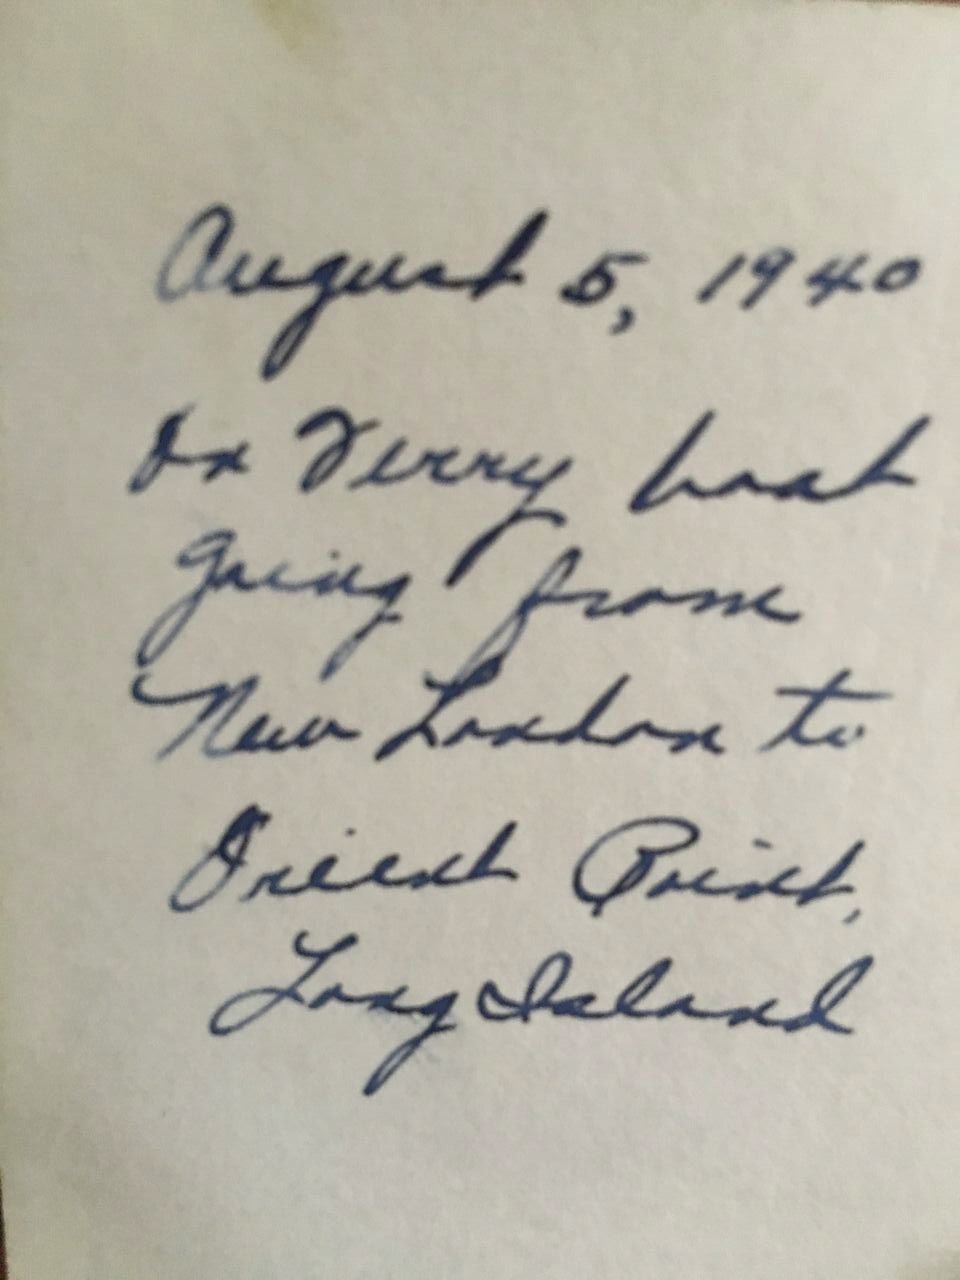 August 5, 1940
On Ferry boat
going from
New London to
Orient Point,
Long Island